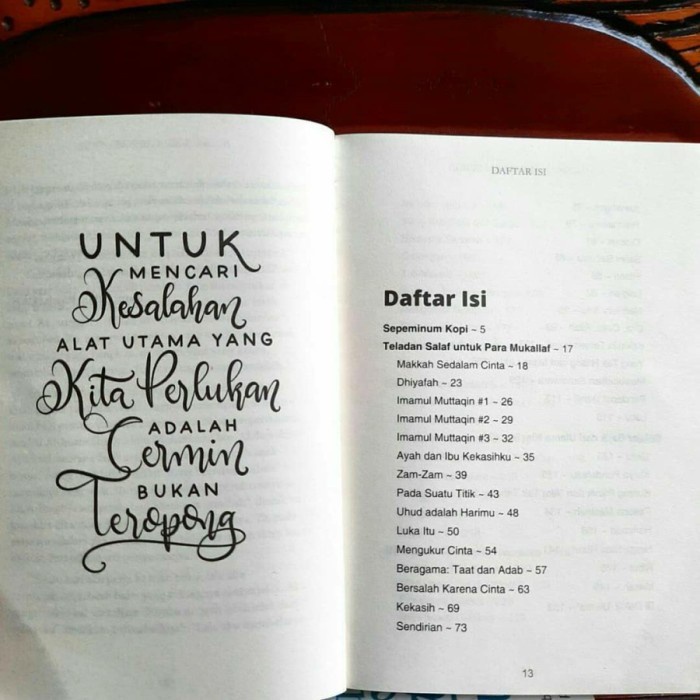 UNTUK
MENCARI
Kesalahan
ALAT UTAMA YANG
Kita Perlukan
ADALAH
Cermin
BUKAN
Teropong
DAFTAR ISI
Daftar Isi
Sepeminum Kopi ~ 5
Teladan Salaf untuk Para Mukallaf ~ 17
Makkah Sedalam Cinta ~ 18
Dhiyafah ~ 23
Imamul Muttaqin #1 ~ 26
Imamul Muttaqin #2 ~ 29
Imamul Muttaqin #3 ~ 32
Ayah dan Ibu Kekasihku ~ 35
Zam-Zam ~ 39
Pada Suatu Titik ~ 43
Uhud adalah Harimu ~ 48
Luka Itu ~ 50
Mengukur Cinta ~ 54
Beragama: Taat dan Adab ~ 57
Bersalah Karena Cinta ~ 63
Kekasih ~ 69
Sendirian ~ 73
13